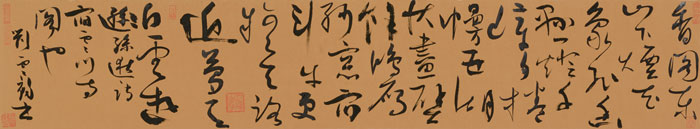 香閣東
山下煙花
象外幽
懸燈千
嶂夕卷
幔五湖
秋畫壁
餘鴻雁
紗窗宿
斗牛更
疑天路
近夢與
白雲遊
孫逖詩
宿雲門寺
閣也